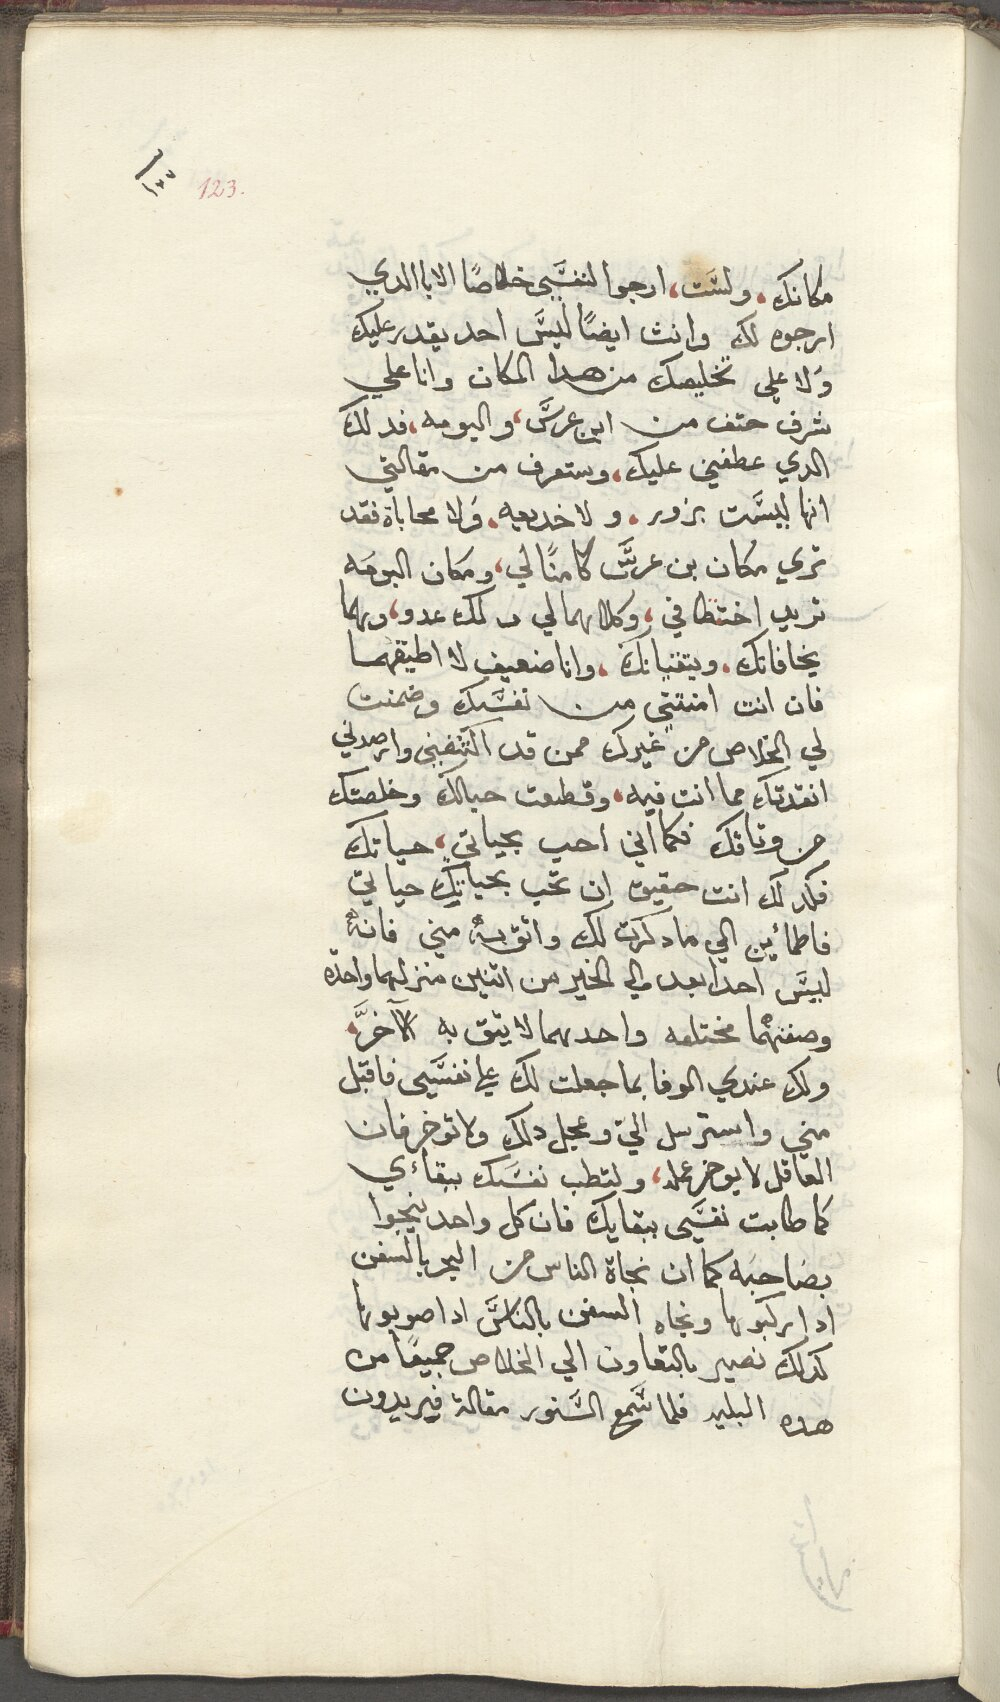 123.
مكانك، ولست، ارجوا لنفسي خلاصًا الا باالدي
ارجوه لك وانت ايضًا ليس احد يقدر عليك
ولا على تخليصك من هدا المكان وانا علي
شرف حتف من ابن عرس، والبومه، فدلك
الدي عطفني عليك، وستعرف من مقالتي
انها ليست بزور، ولا خديعه، ولا محاباة فقد
تري مكان بن عرس كامنًا لي، ومكان البومه
تريد اختطافي، وكلاهما لي ولك عدو، وهما
يخافانك، ويتقيانك، وانا ضعيف لا اطيقهما
فان انت امنتني من نفسك وضمنت
لي الخلاص من غيرك ممن قد اكتنفني وارصدني
انقدتك مما انت فيه، وقطعت حبالك وخلصتك
من وتاقك فكما اني احب بحياتي، حياتك
فكدلك انت حقيق ان تحب بحياتك حياتي
فاطمأين الي مادكرت لك واتق به مني فانه
ليس احدا ابعد من الخير من اتنين منزلهما واحدة
وصفتهما مختلفه واحدهما لا يتق به الآخر،
ولك عندي الوفا بما جعلت لك علي نفسي فاقبل
مني واسترسل اليّ وعجل دلك ولا توخر فان
العاقل لا يوخر عمله، ولتطب نفسك ببقاءي
كما طابت نفسي ببقايك فان كل واحد ينجوا
بصاحبه كما ان نجاة الناس من البحر بالسفن
ادا ركبوها ونجاه السفن بالناس ادا صوبوها
كدلك نصير بالتعاون الي الخلاص جميعًا من
هده البليه فلما سمع السنور مقالة فيريدون